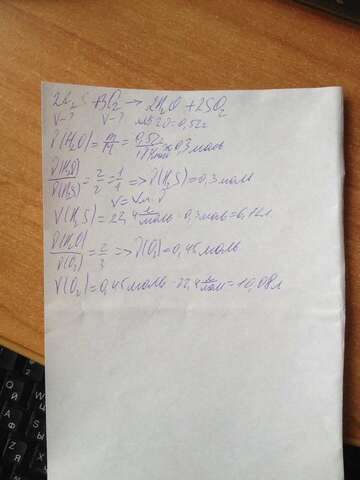 2H₂S + 3O₂ → 2H₂O + 2SO₂
V-? V-? m = 0,52г
ν(H₂O) = m/M = 0,52г / = 0,3 моль
ν(H₂O)/ν(H₂S) = 2/2 = 1/1 => ν(H₂S) = 0,3 моль
V = Vm · ν
V(H₂S) = 22,4 л/моль · 0,3 моль = 6,12л
ν(H₂O)/ν(O₂) = 2/3 => ν(O₂) = 0,45 моль
V(O₂) = 0,45 моль · 22,4 л/моль = 10,08 л
Q
A
Z
Й
Ф
Я
W
S
X
Ы